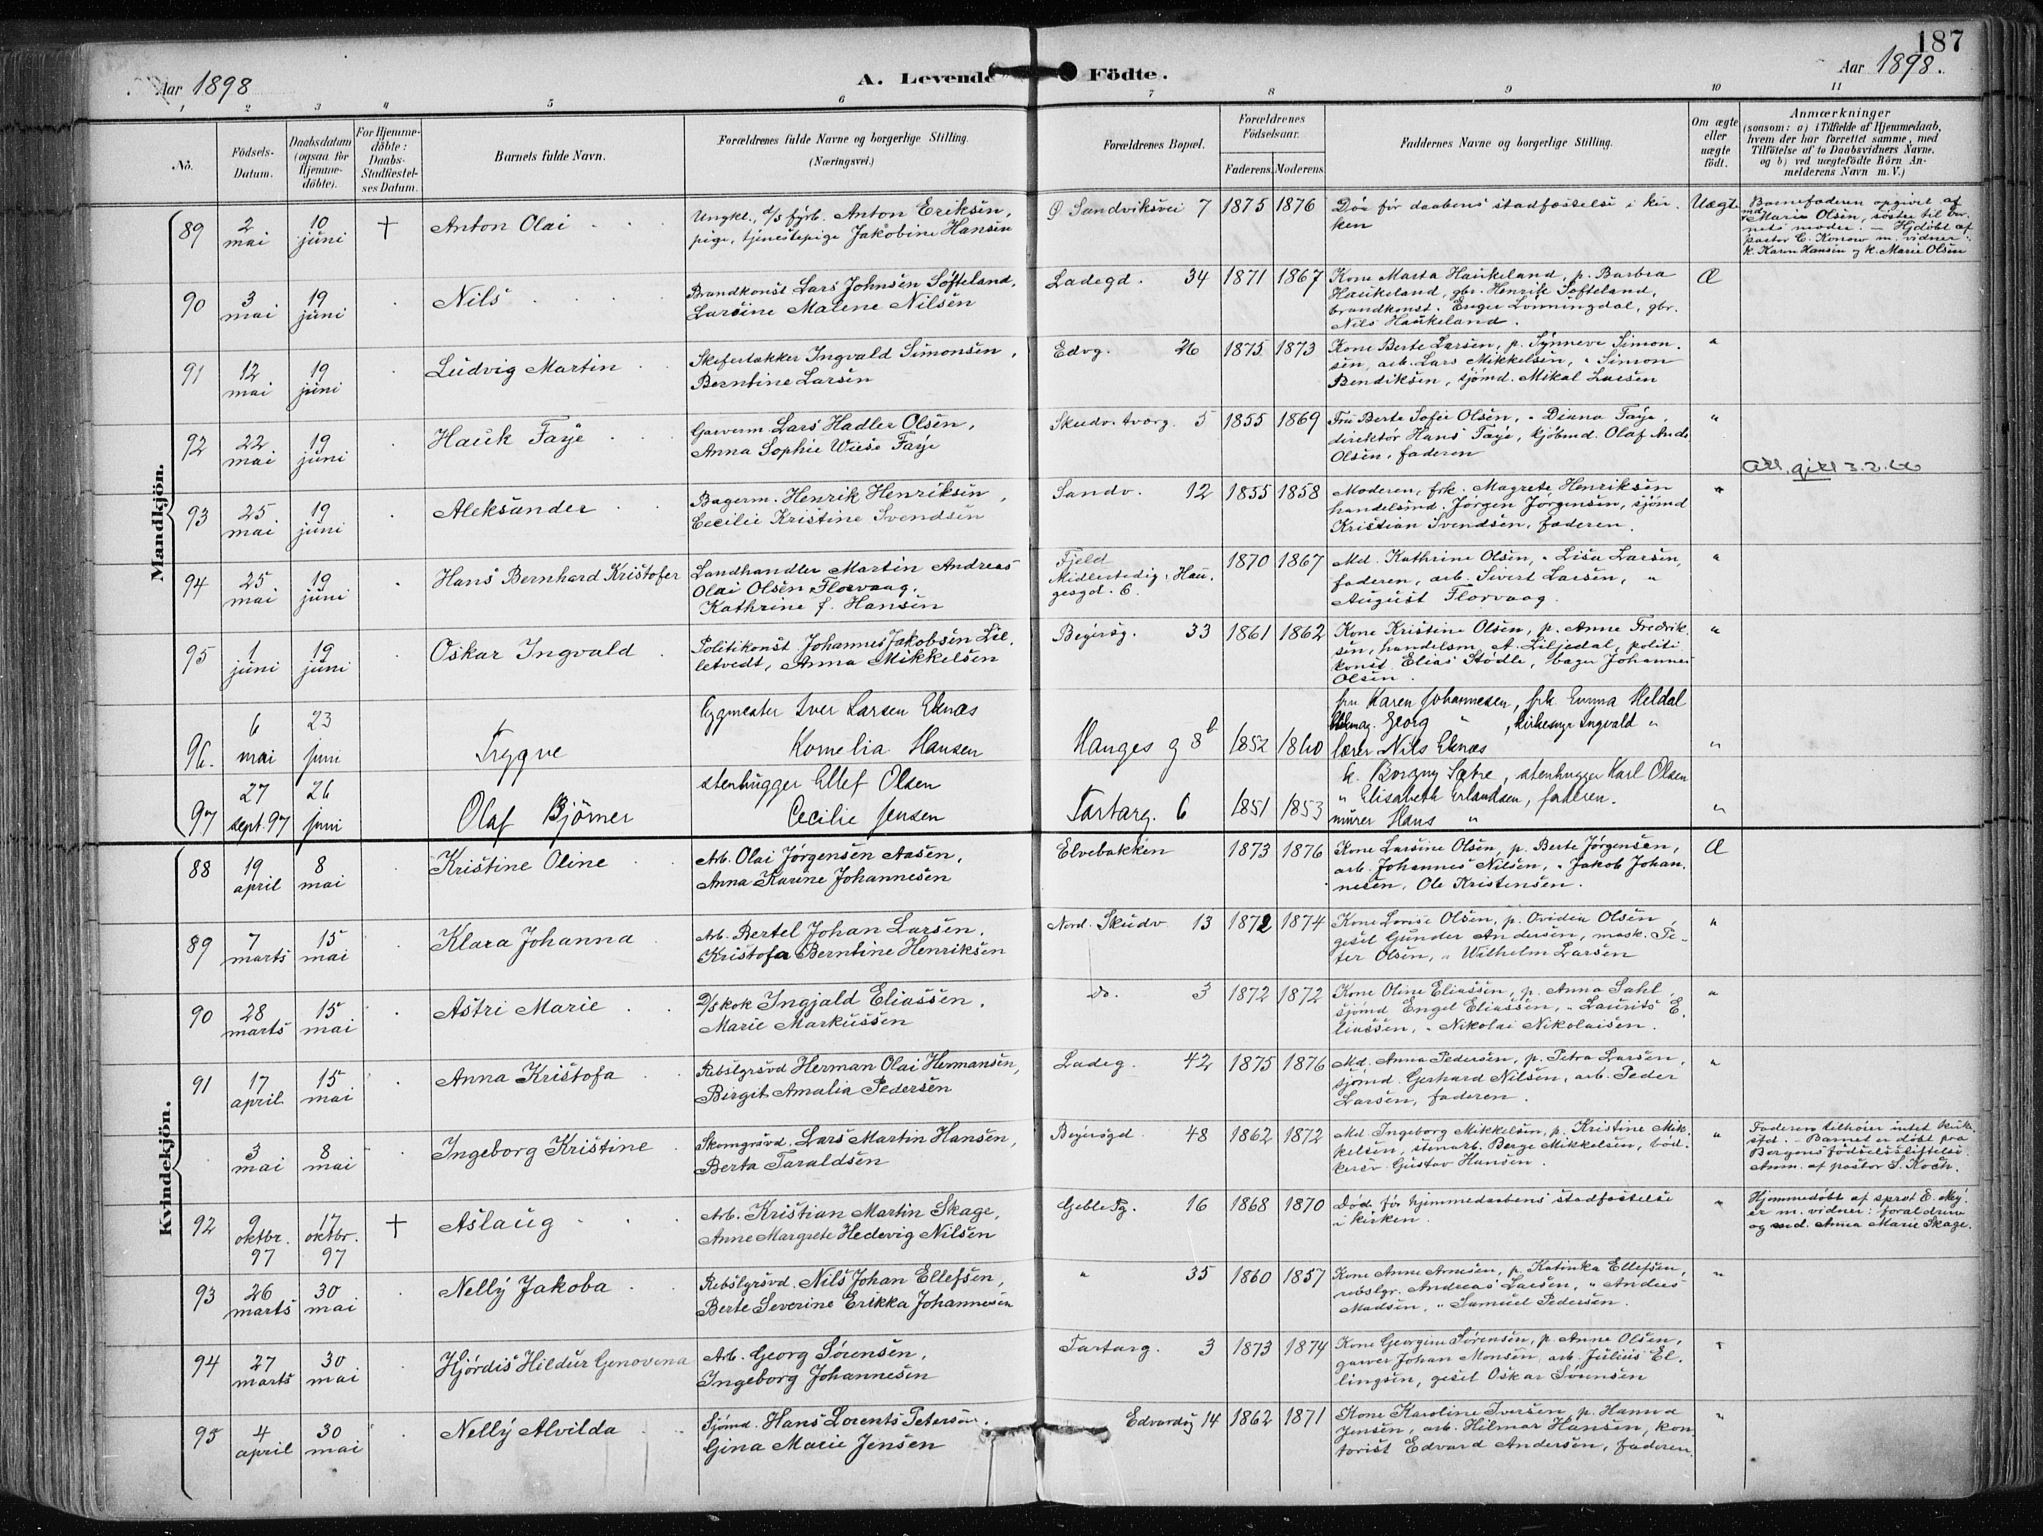 187
Aar 1898
A. Levende Födte.
Aar 1898.
1 2 3 4 5 6 7 8 9 10 11
No.
Födsels-Datum.
Daabsdatum (ogsaa for Hjemme-döbte).
For Hjemme-döbte: Daabs-Stadfæstel-ses Datum.
Barnets fulde Navn.
Forældrenes fulde Navne og borgerlige Stilling. (Næringsvei.)
Forældrenes Bopæl.
Forældrenes Födselsaar.
Faderens. Moderens.
Faddernes Navne og borgerlige Stilling.
Om ægte eller uægte födt.
Anmærkninger
(saasom: a) i Tilfælde af Hjemmedaab, hvem der har forrettet samme, med Tilföielse af to Daabsvidners Navne, og b) ved uægtefödte Börn An-melderens Navn m. V.)
Mandkjön.
89 2 mai 10 juni + Anton Olai
Ungkl., d/s fyrb. Anton Eriksen,
pige, tjenestepige Jakobine Hansen
Ø Sandviksvei 7 1875 1876
Død før daabens stadfæstelse i kir-
ken
Uægte
Barnefaderen opgivet af
md Marie Olsen, søster til bar-
nets moder. - Hjdøbt af
pastor C. Konow m. vidner:
k. Karen Hansen og k. Marie Olsen
90 3 mai 19 juni Nils
Brandkonst Lars Johnsen Søfteland,
Larsine Malene Nilsen
Ladegd. 34 1871 1867
Kone Marta Haukeland, p. Barbra
Haukeland, gbr. Henrik Søfteland,
brandkonst. Engel Lønningdal, gbr.
Nils Haukeland.
Æ
91 12 mai 19 juni Ludvig Martin
Skifertækker Ingvald Simonsen,
Berntine Larsen
Edvg. 26 1875 1873
Kone Berte Larsen, p. Synneve Simon-
sen, arb. Lars Mikkelsen, " Simon
Bendiksen, sjømd. Mikal Larsen
"
92 22 mai 19 juni Hauk Faye
Garverm Lars Hadler Olsen,
Anna Sophie Wiese Faye
Skudv. tverg. 5 1855 1869
Fru Berte Sofie Olsen, " Diana Faye,
direktør Hans Faye, kjøbmd. Olaf And.
Olsen, faderen
"
Att. gitt 3.2.66
93 25 mai 19 juni Aleksander
Bagerm. Henrik Henriksen,
Cecilie Kristine Svendsen
Sandv. 12 1855 1858
Moderen, frk. Magrete Henriksen
handelsmd. Jørgen Jørgensen, sjømd
Kristian Svendsen, faderen.
"
94 25 mai 19 juni Hans Bernhard Kristofer
Landhandler Martin Andreas
Olai Olsen Florvaag,
Kathrine f. Hansen
Fjeld
Midlertidig: Hau-
gesgd. 6. 1870 1867
Md. Kathrine Olsen, " Lisa Larsen,
faderen, arb. Sivert Larsen, "
August Florvaag.
"
95 1 juni 19 juni Oskar Ingvald
Politikonst Johannes Jakobsen Lil-
letvedt, Anna Mikkelsen
Beyersg. 33 1861 1862
Kone Kristine Olsen, p. Anne Fredrik-
sen, handelsm A. Liljedal, politi
konst Elias Stødle, bager Johannes
Olsen.
"
96. 6 mai 23 juni Trygve
bygmester Iver Larsen Eknæs
Kornelia Hansen
Hauges g 8b 1852 1860
fru Karen Johannesen, frk Emma Meldal
Georg " , kirkesgr Ingvald "
lærer Nils Eknæs
"
97 27 sept. 97 26 juni Olaf Bjørner
stenhugger Ellef Olsen
Cecilie Jensen
Tartarg. 6 1851 1853
k. Borgny Sætre, stenhugger Karl Olsen
" Elisabeth Erlandsen, faderen.
murer Hans "
"
Kvindekjön.
88 19 april 8 mai Kristine Oline
Arb. Olai Jørgensen Aasen,
Anna Karine Johannesen
Elvebakken 1873 1876
Kone Larsine Olsen, p. Berte Jørgensen,
arb. Johannes Nilsen, " Jakob Johan-
nesen, Ole Kristensen.
Æ
89 7 marts 15 mai Klara Johanna
Arb. Bertel Johan Larsen,
Kristofa Berntine Henriksen
Nord. Skudv 13 1872 1874
Kone Lovise Olsen, p. Ovidia Olsen,
gesel Gunder Andersen, mask. Pe-
ter Olsen, " Wilhelm Larsen
"
90 28 marts 15 mai Astri Marie
D/s kok Ingjald Eliassen,
Marie Markussen
Do. 3 1872 1872
Kone Oline Eliassen, p. Anna Dahl,
sjømd Engel Eliassen, " Laurits E-
liassen, " Nikolai Nikolaisen.
"
91 17 april 15 mai Anna Kristofa
Rebslgrsvd Herman Olai Hermansen,
Bergit Amalia Pedersen
Ladeg. 42 1875 1876
Md. Anna Pedersen, p. Petra Larsen,
sjømd. Gerhard Nilsen, arb. Peder
Larsen, faderen.
"
3 mai 8 mai Ingeborg Kristine
Skomgrsvd. Lars Martin Hansen,
Berta Taraldsen
Beyersgd 48 1862 1872
Md. Ingeborg Mikkelsen, p. Kristine Mik-
kelsen, stenarb. Børge Mikkelsen, bød-
kersv. Gustav Hansen.
"
Faderen tilhører intet kirke-
sfd. - Barnet er døbt paa
Bergens fødselsstiftelse.
Anm. af pastor S. Koch.
92 9 oktbr. 97 17 oktbr. 97 + Aslaug
Arb. Kristian Martin Skage,
Anne Margrete Hedevig Nilsen
Geble Pg. 16 1868 1870
Død før hjemmedaabens stadfæstelse
i kirken.
"
Hjemmedøbt af sprst E. Mey-
er m. vidner: forældrene
og md. Anna Marie Skage.
93 26 marts 30 mai Nelly Jakoba
Rebslgrsvd. Nils Johan Ellefsen,
Berte Severine Erikka Johannesen
" 35 1860 1857
Kone Anne Arnesen, p. Katinka Ellefsen,
rebslgr. Andreas Larsen, " Anders
Madsen, " Samuel Pedersen.
"
94 27 marts 30 mai Hjørdis Hildur Genovena
Arb. Georg Sørensen,
Ingeborg Johannesen
Tartarg. 3 1873 1874
Kone Georgine Sørensen, p. Anne Olsen,
garver Johan Monsen, arb. Julius El-
lingsen, gesel Oskar Svensen
"
95 4 april 30 mai Nelly Alvilda
Sjømd. Hans Lorents Petersen,
Gina Marie Jensen
Edvardsg 14 1862 1871
Kone Karoline Iversen, p. Hanna
Jensen, arb. Hilmar Hansen, kon-
torist Edvard Andersen, faderen
"